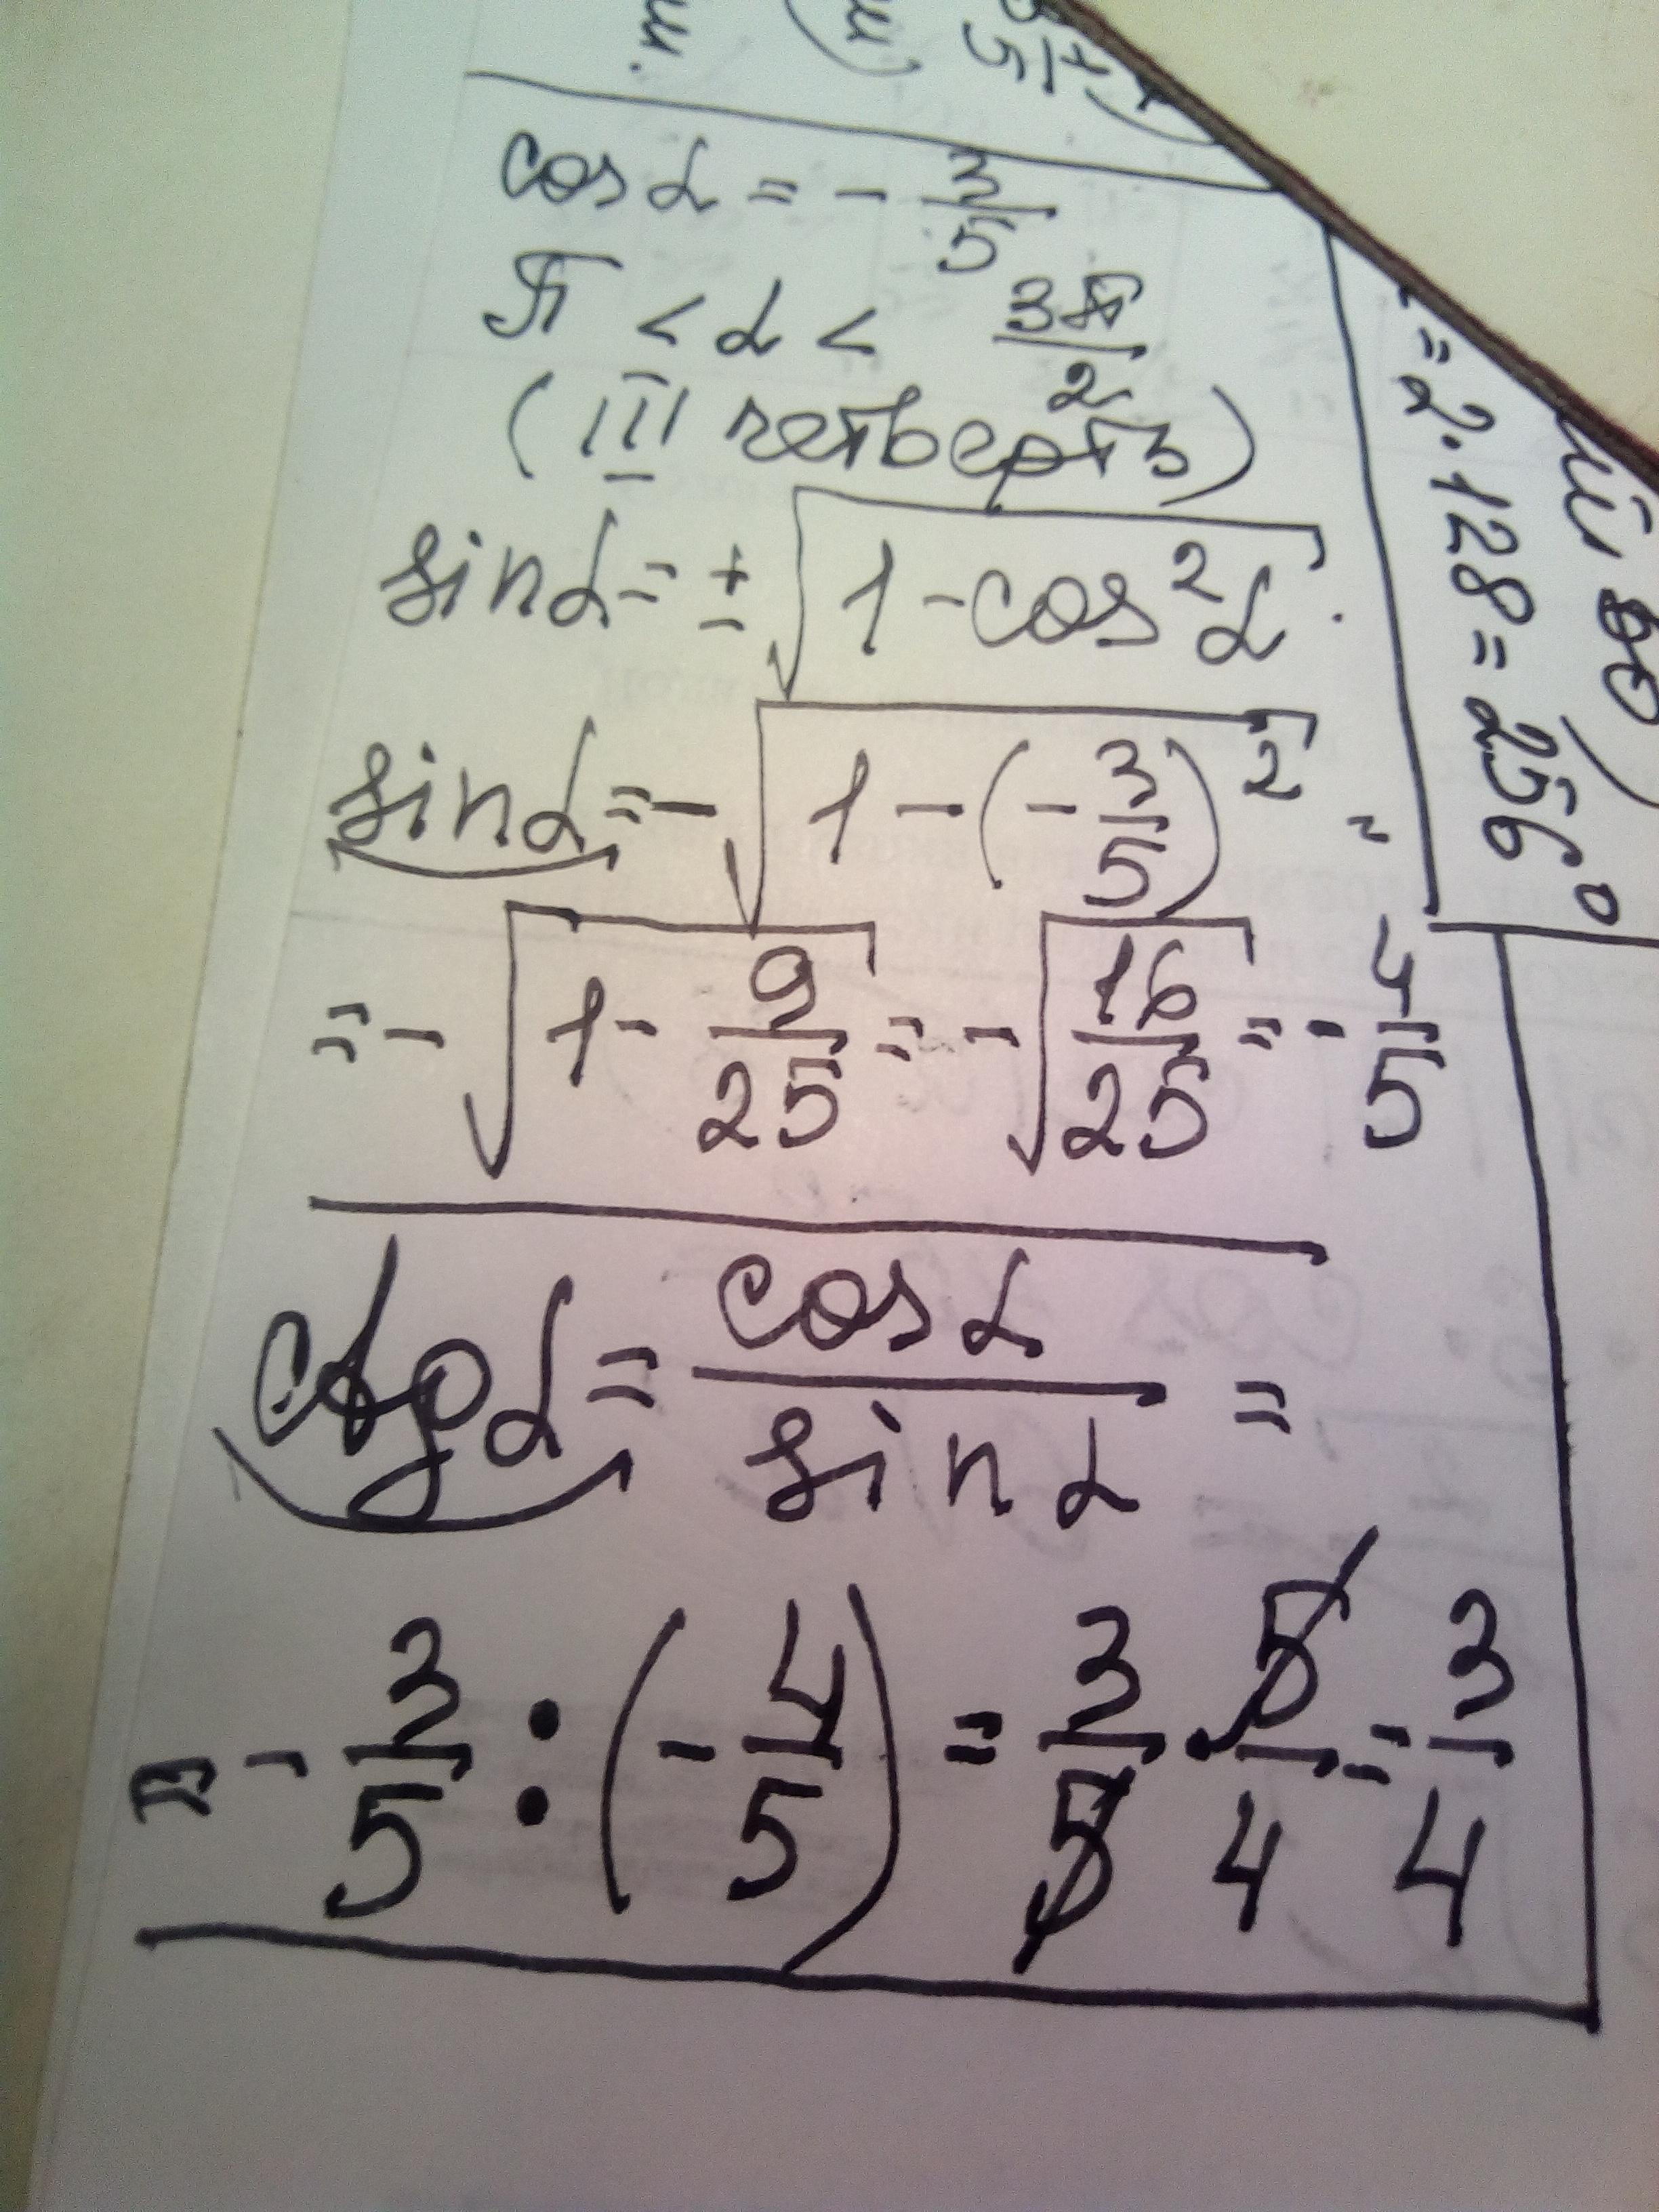 cos α = - 3/5
π < α < 3π/2
(III четверть)
sin α = ± √(1 - cos² α)
sin α = - √(1 - (- 3/5)²) =
= - √(1 - 9/25) = - √(16/25) = - 4/5
ctg α = cos α / sin α =
= - 3/5 : (- 4/5) = 3/5 · 5/4 = 3/4
= 2 · 128 = 256°